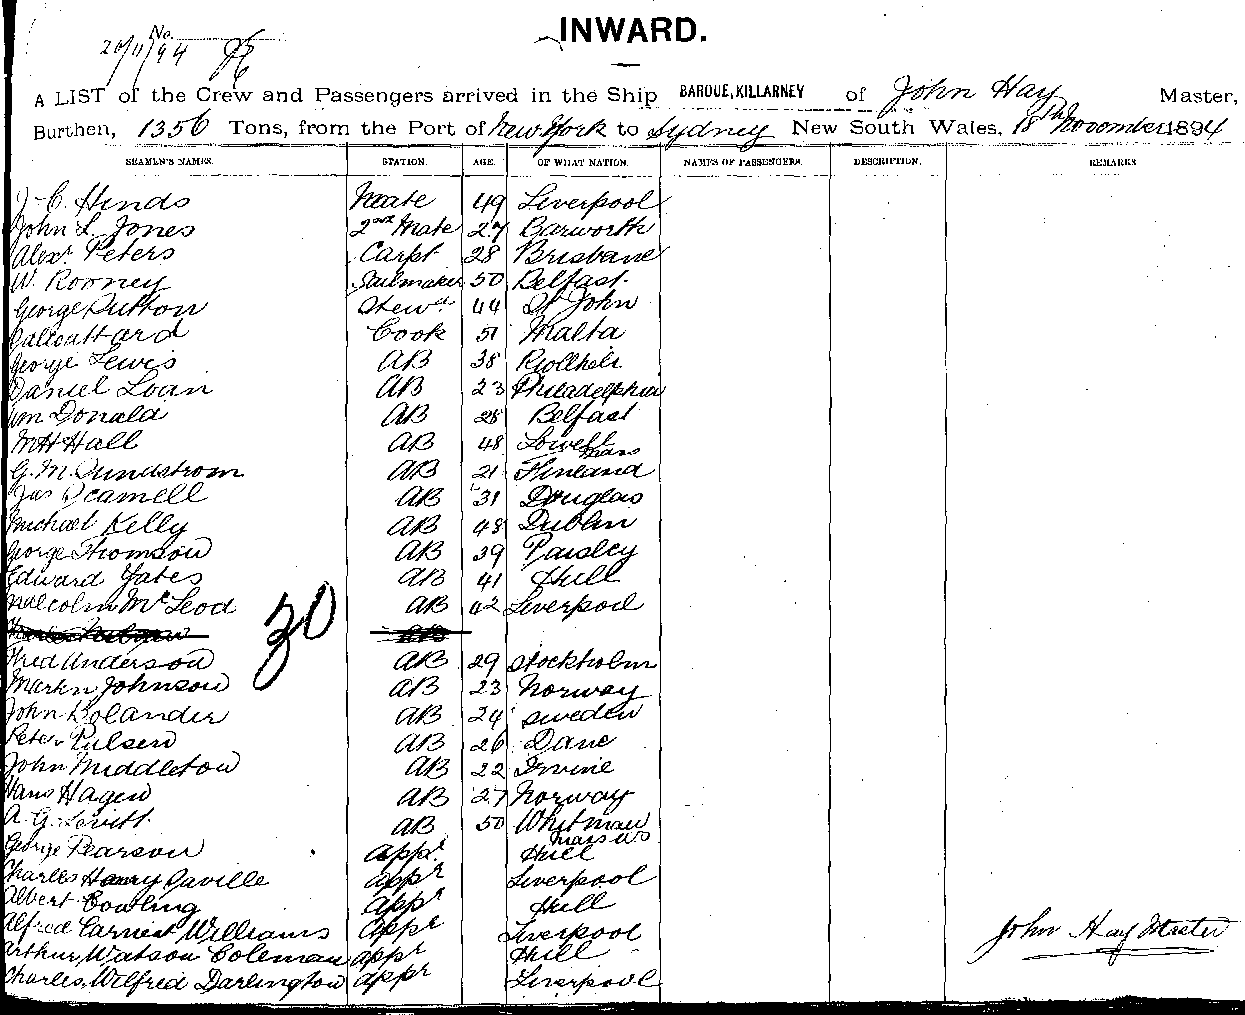 INWARD.
No.
20/11/94
A LIST of the Crew and Passengers arrived in the Ship BARQUE, KILLARNEY of John Hay Master,
Burthen, 1356 Tons, from the Port of New York to Sydney New South Wales, 18th November 1894
SEAMEN'S NAMES. STATION. AGE. OF WHAT NATION. NAMES OF PASSENGERS. DESCRIPTION. REMARKS
J. C. Hinds Mate 49 Liverpool
John L. Jones 2nd Mate 27 Barworth
Alexr. Peters Carpt 28 Brisbane
W. Rooney Sailmaker 50 Belfast.
George Rutton Stewd 44 St John
Cook 51 Malta
George Lewis AB 38
Daniel Loan AB 23 Philadelphia
Wm Donald AB 28 Belfast
Hall AB 48 Lowell Mass
G. M. Sundstrom AB 21 Finland
Jas Scamell AB 31 Douglas
Michael Kelly AB 48 Dublin
George Thomson AB 39 Paisley
Edward Yates AB 41 Hull
Malcolm McLeod AB 42 Liverpool
30
Fred Anderson AB 29 Stockholm
Martin Johnson AB 23 Norway
John Bolander AB 24 Sweden
Peter Pulsen AB 26 Dane
John Middleton AB 22 Irvine
Hans Hagen AB 27 Norway
A. G. Levitt AB 50 Whitman Mass US
George Pearson Appr Hull
Charles Harry Gaville Appr Liverpool
Albert Cowling Appr Hull
Alfred Earnest Williams Appr Liverpool
Arthur Watson Coleman Appr Hull
Charles Wilfred Darlington Appr Liverpool
John Hay Master